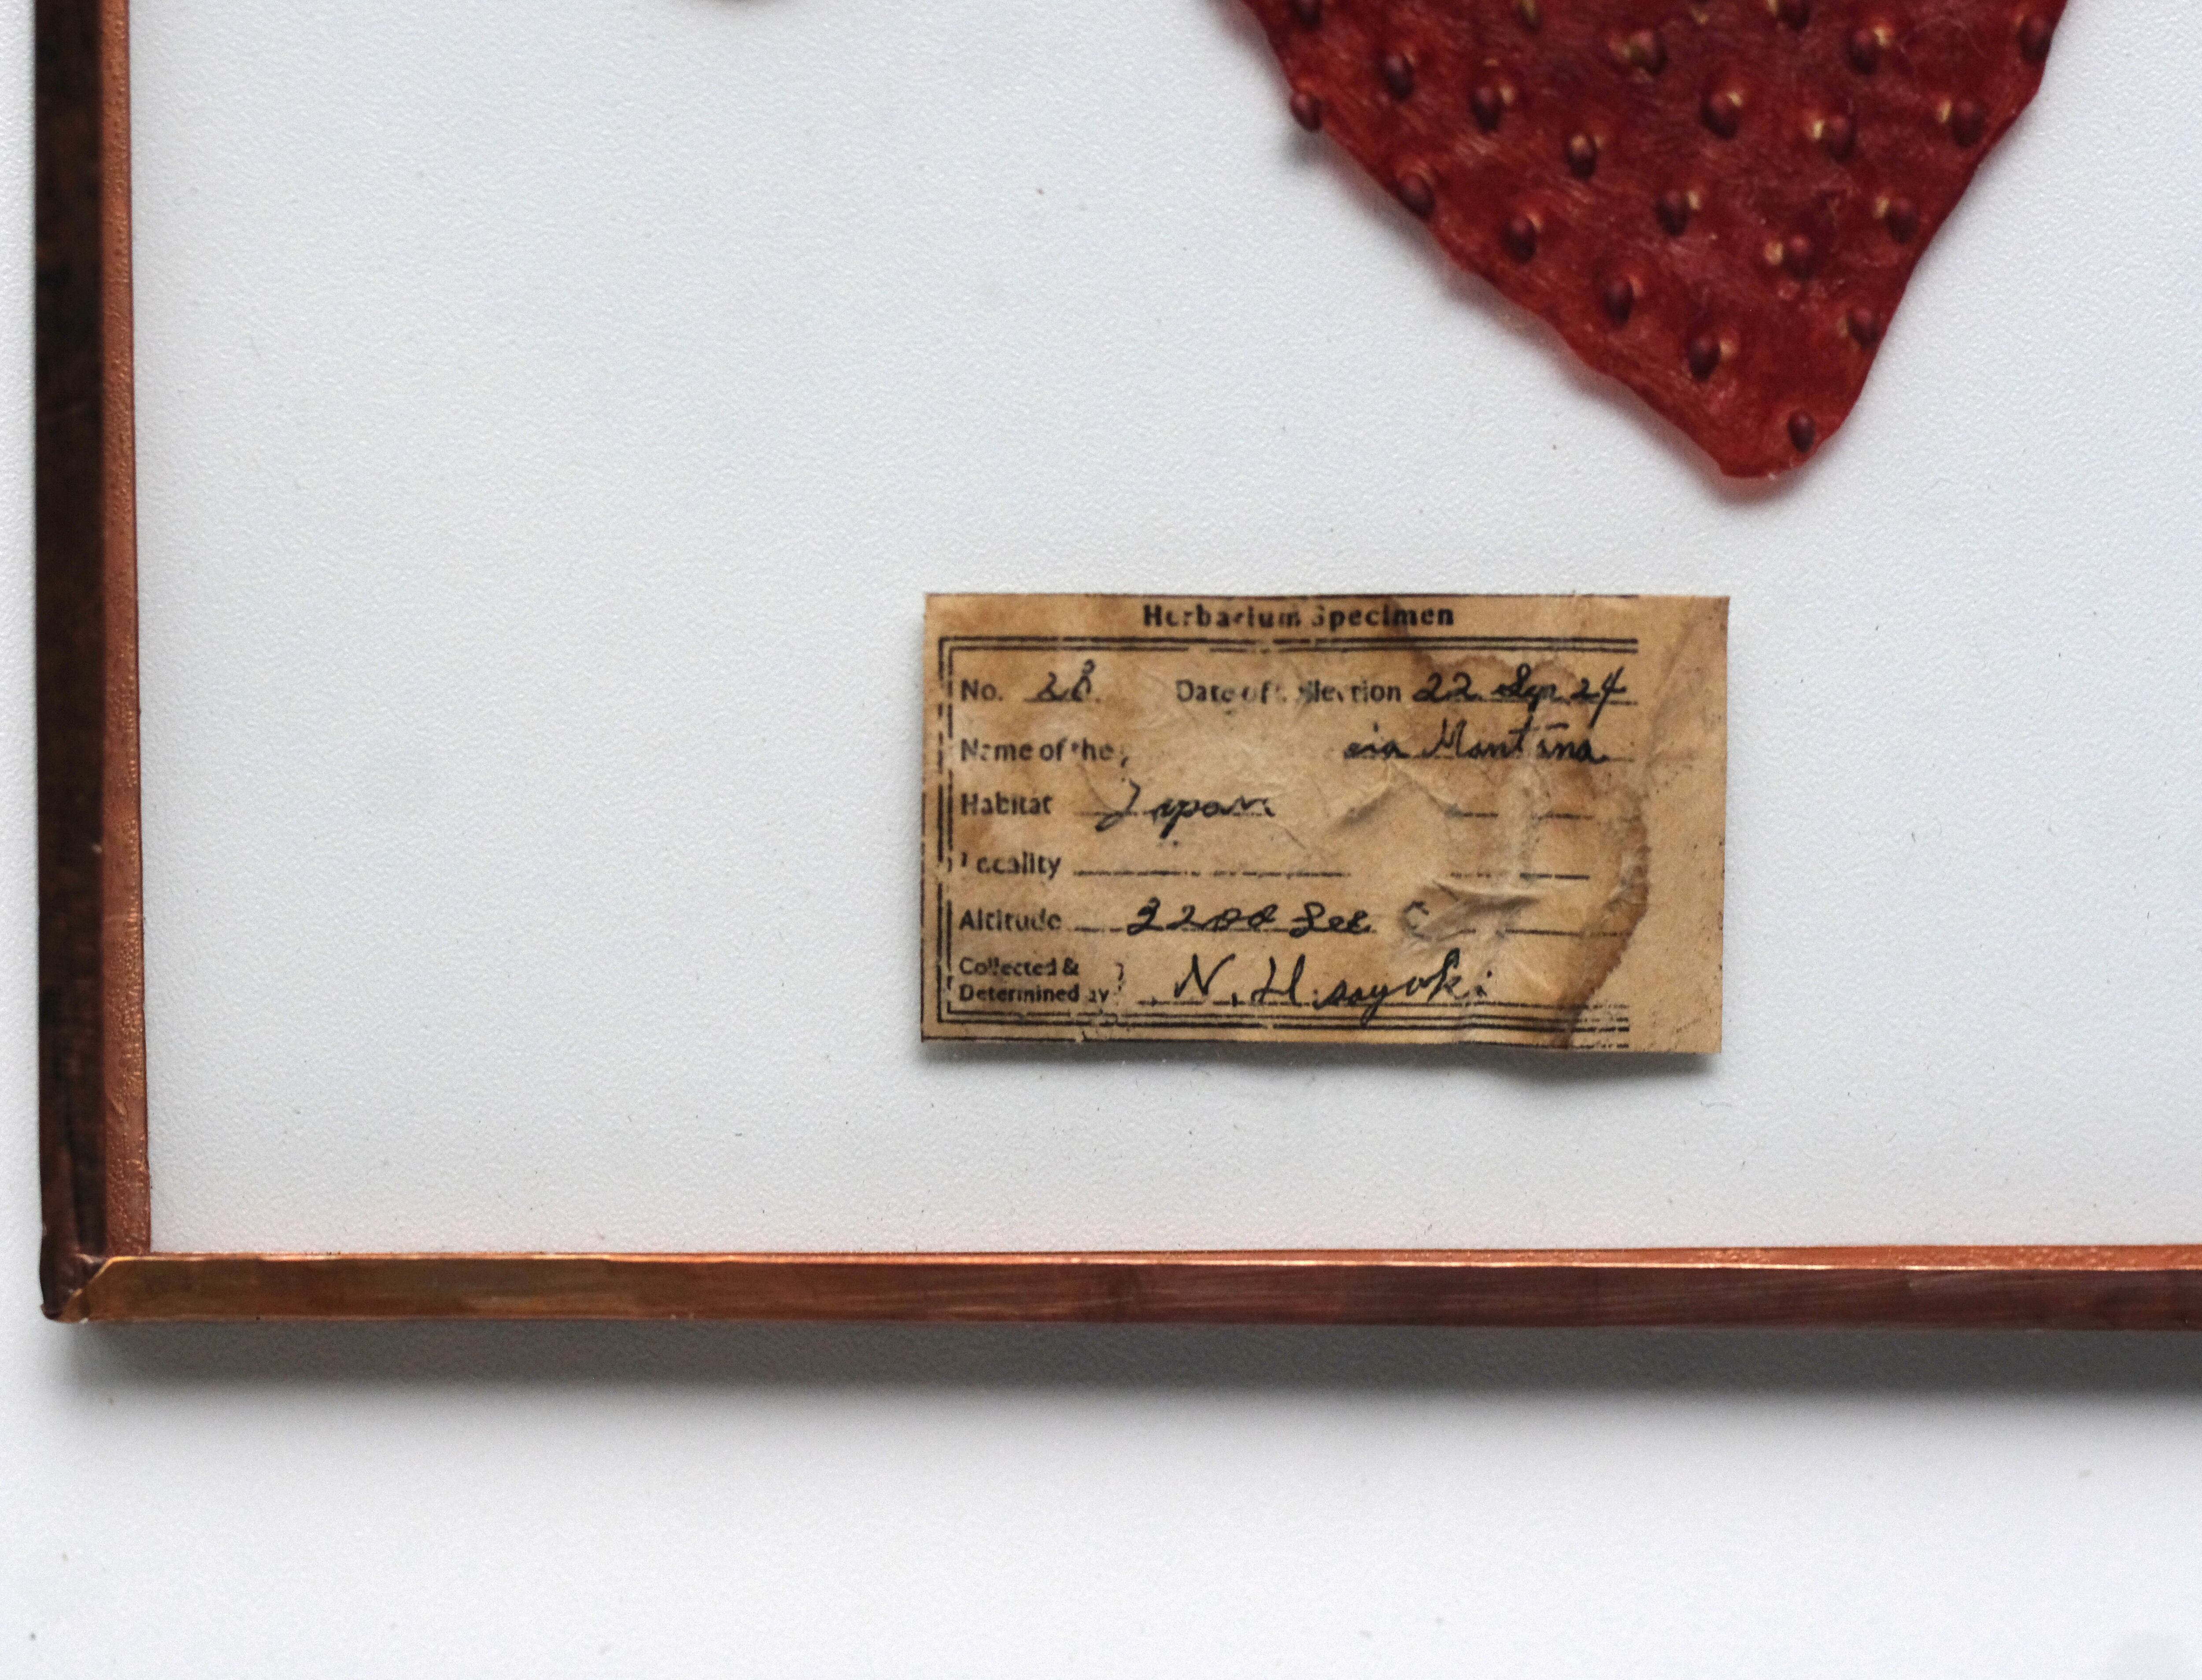 Herbarium Specimen
No. 28 Date of 22 Sep 24
Name of the Montana
Habitat Japan
Locality
Altitude 2200
Collected &
Determined by N. H